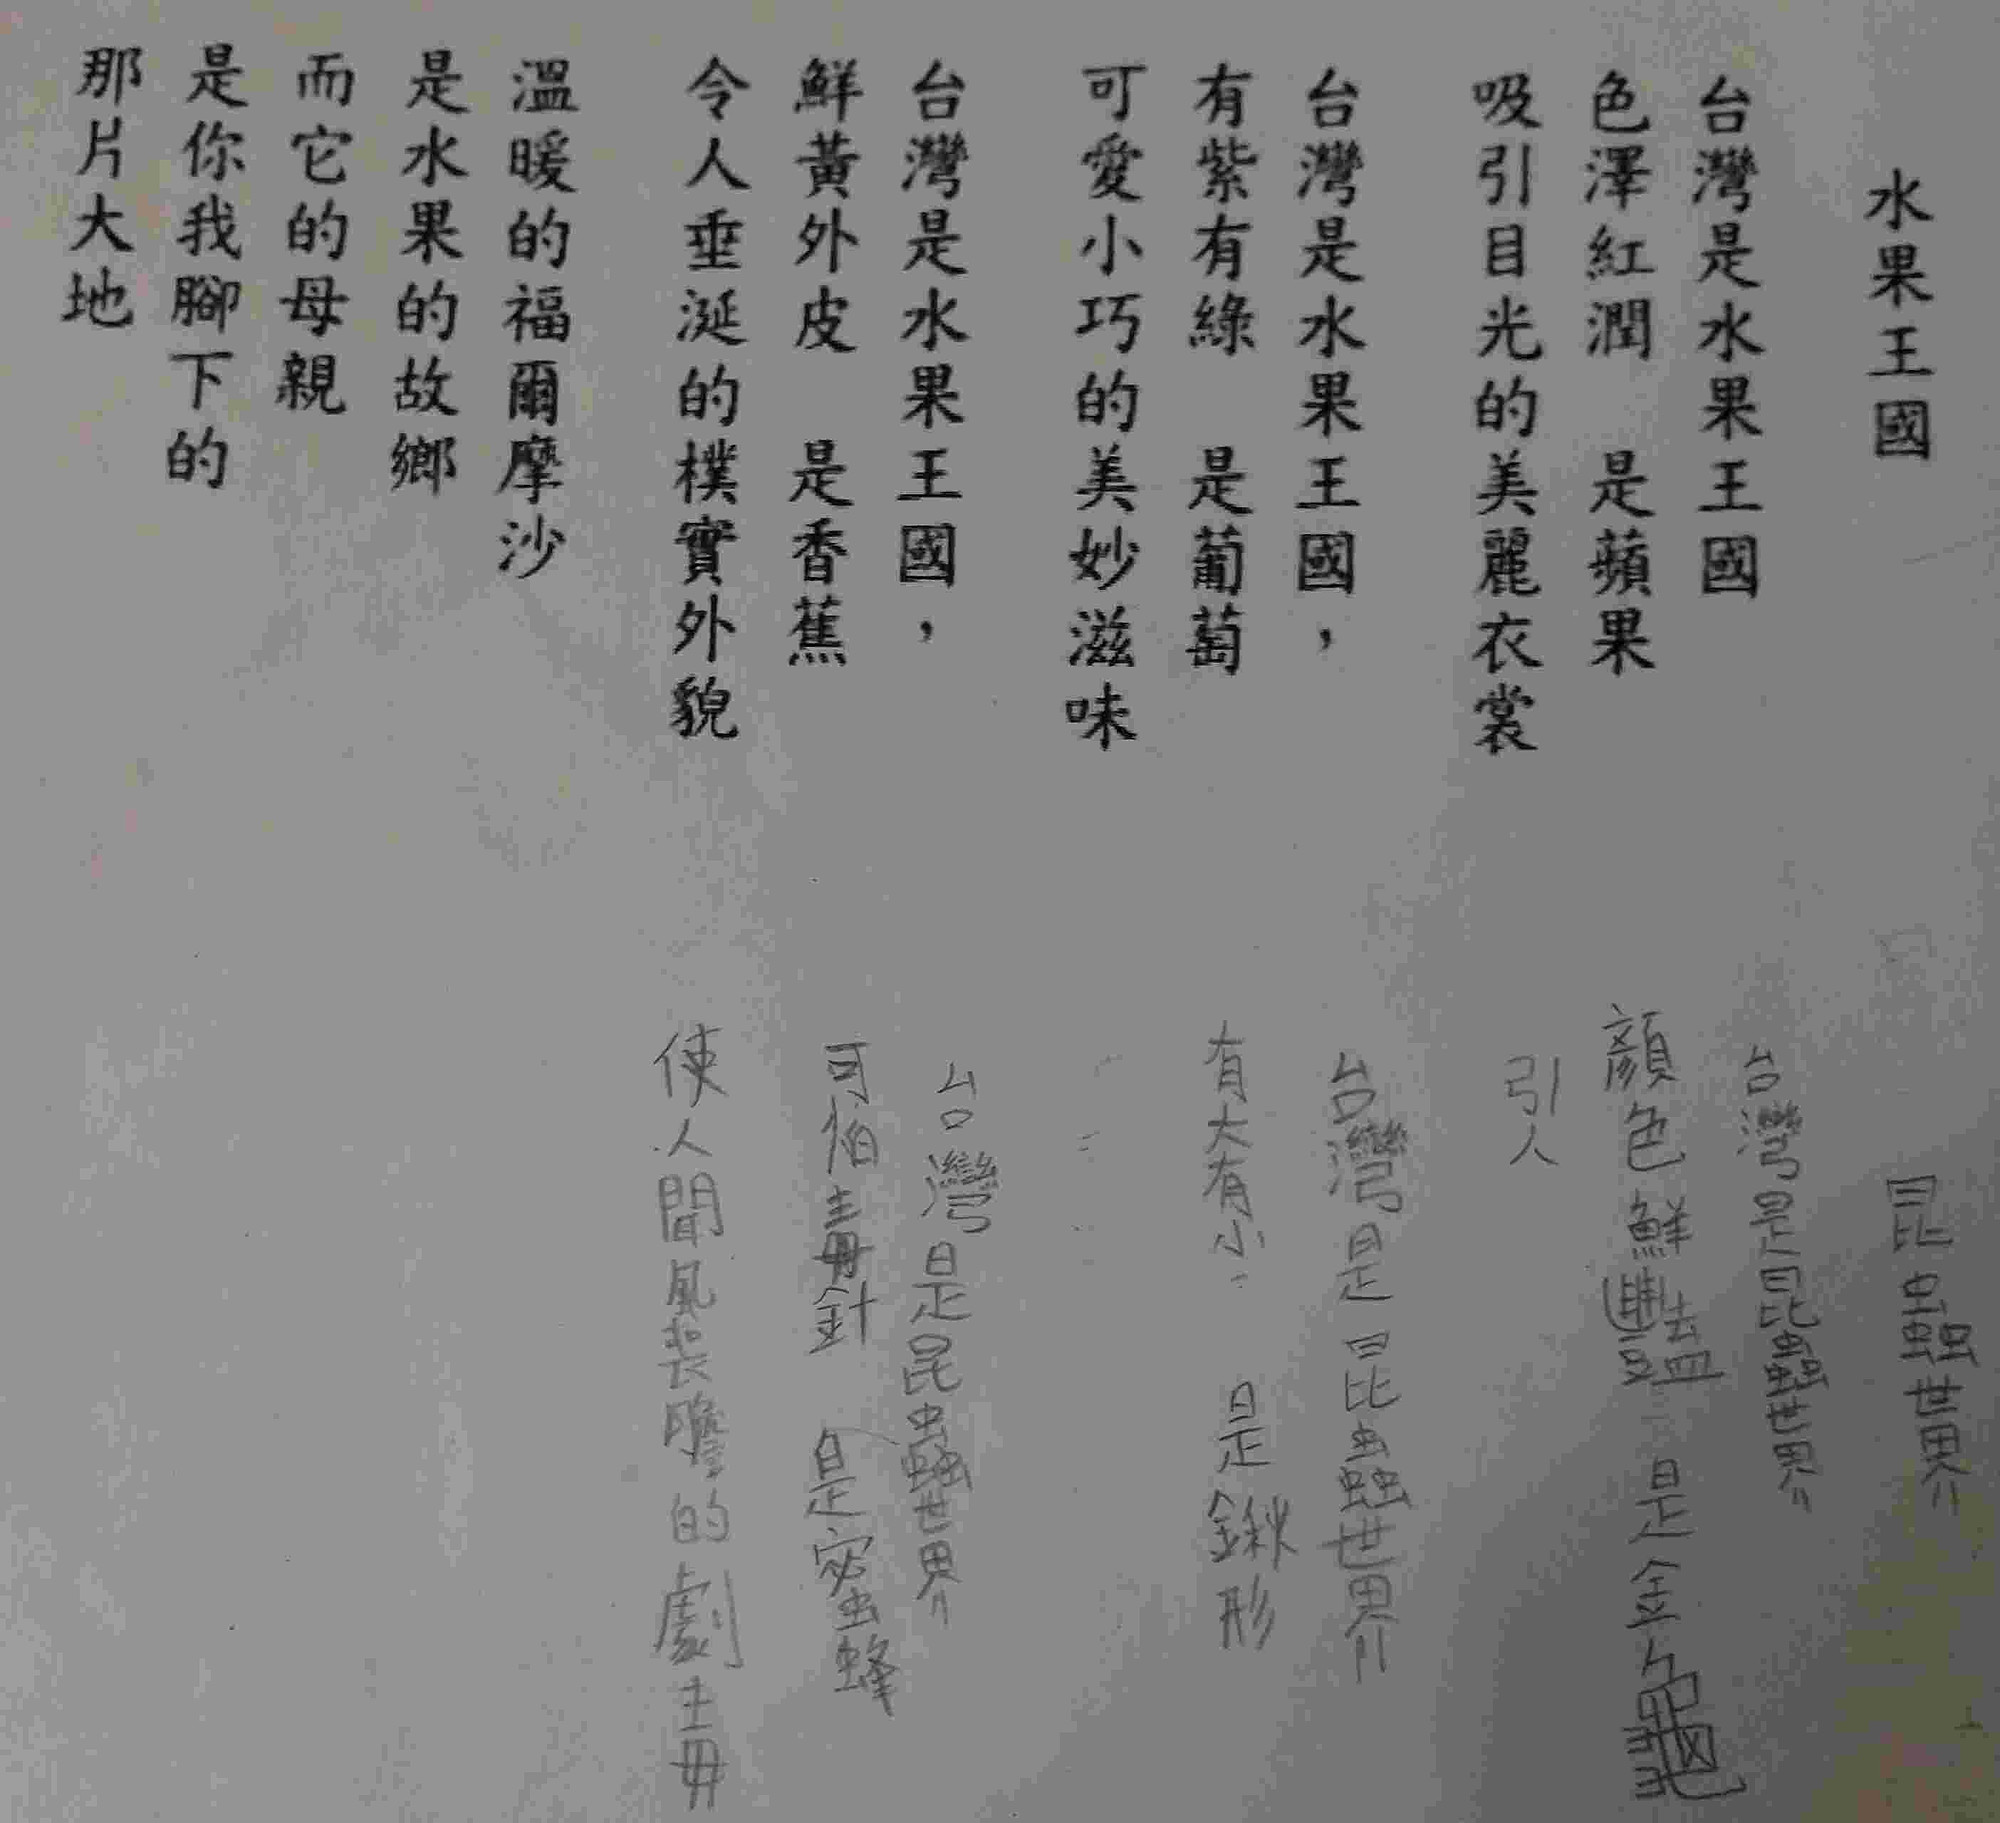 水果王國
台灣是水果王國
色澤紅潤　是蘋果
吸引目光的美麗衣裳
台灣是水果王國，
有紫有綠　是葡萄
可愛小巧的美妙滋味
台灣是水果王國，
鮮黃外皮　是香蕉
令人垂涎的樸實外貌
溫暖的福爾摩沙
是水果的故鄉
而它的母親
是你我腳下的
那片大地
昆蟲世界
台灣是昆蟲世界
顏色鮮豔　是金龜
引人
台灣是昆蟲世界
有大有小　是鍬形
台灣是昆蟲世界
可怕毒針　是蜜蜂
使人聞風喪膽的劇毒